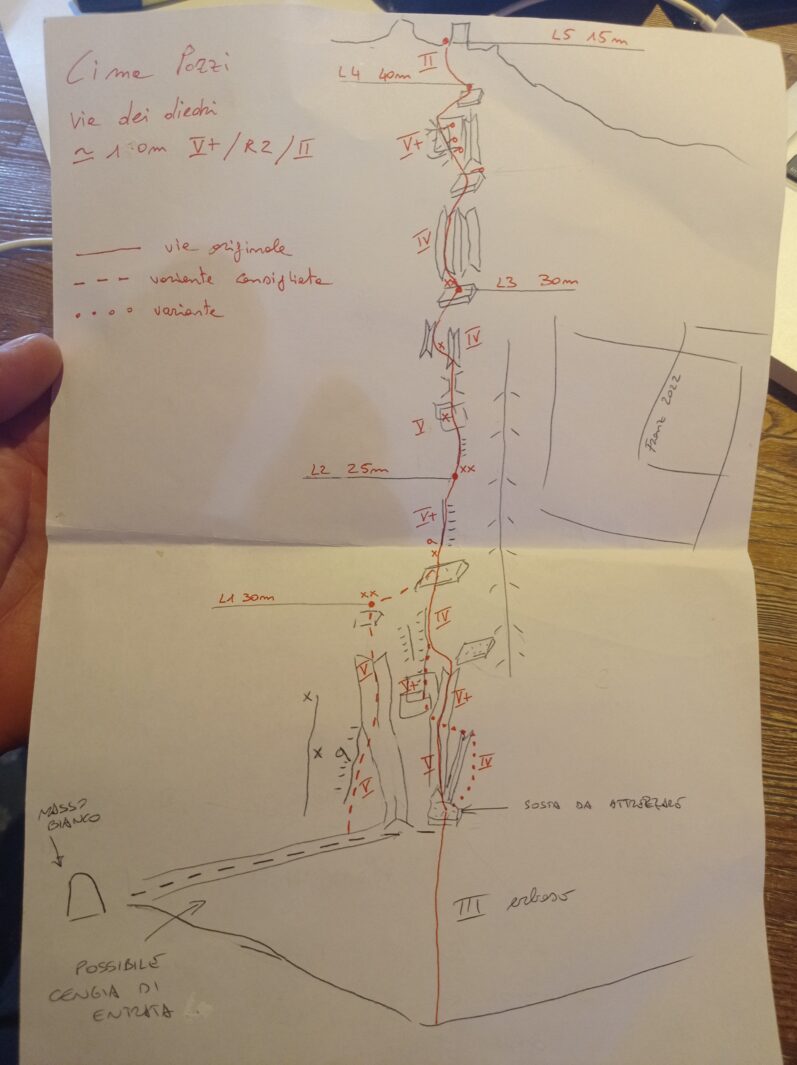 Cima Pozzi
via dei diedri
V+ / R2 / II
via originale
variente consigliata
variante
L5 15m
II
L4 40m
V+
IV
xx
L3 30m
x
IV
x
V
L2 25m
xx
V+
x
xx
L1 30m
IV
V
V+
V+
x
x
V
V
IV
SOSTA DA ATTREZZARE
MASSO
BIANCO
III erboso
POSSIBILE
CENGIA DI
ENTRATA
Franz 2022